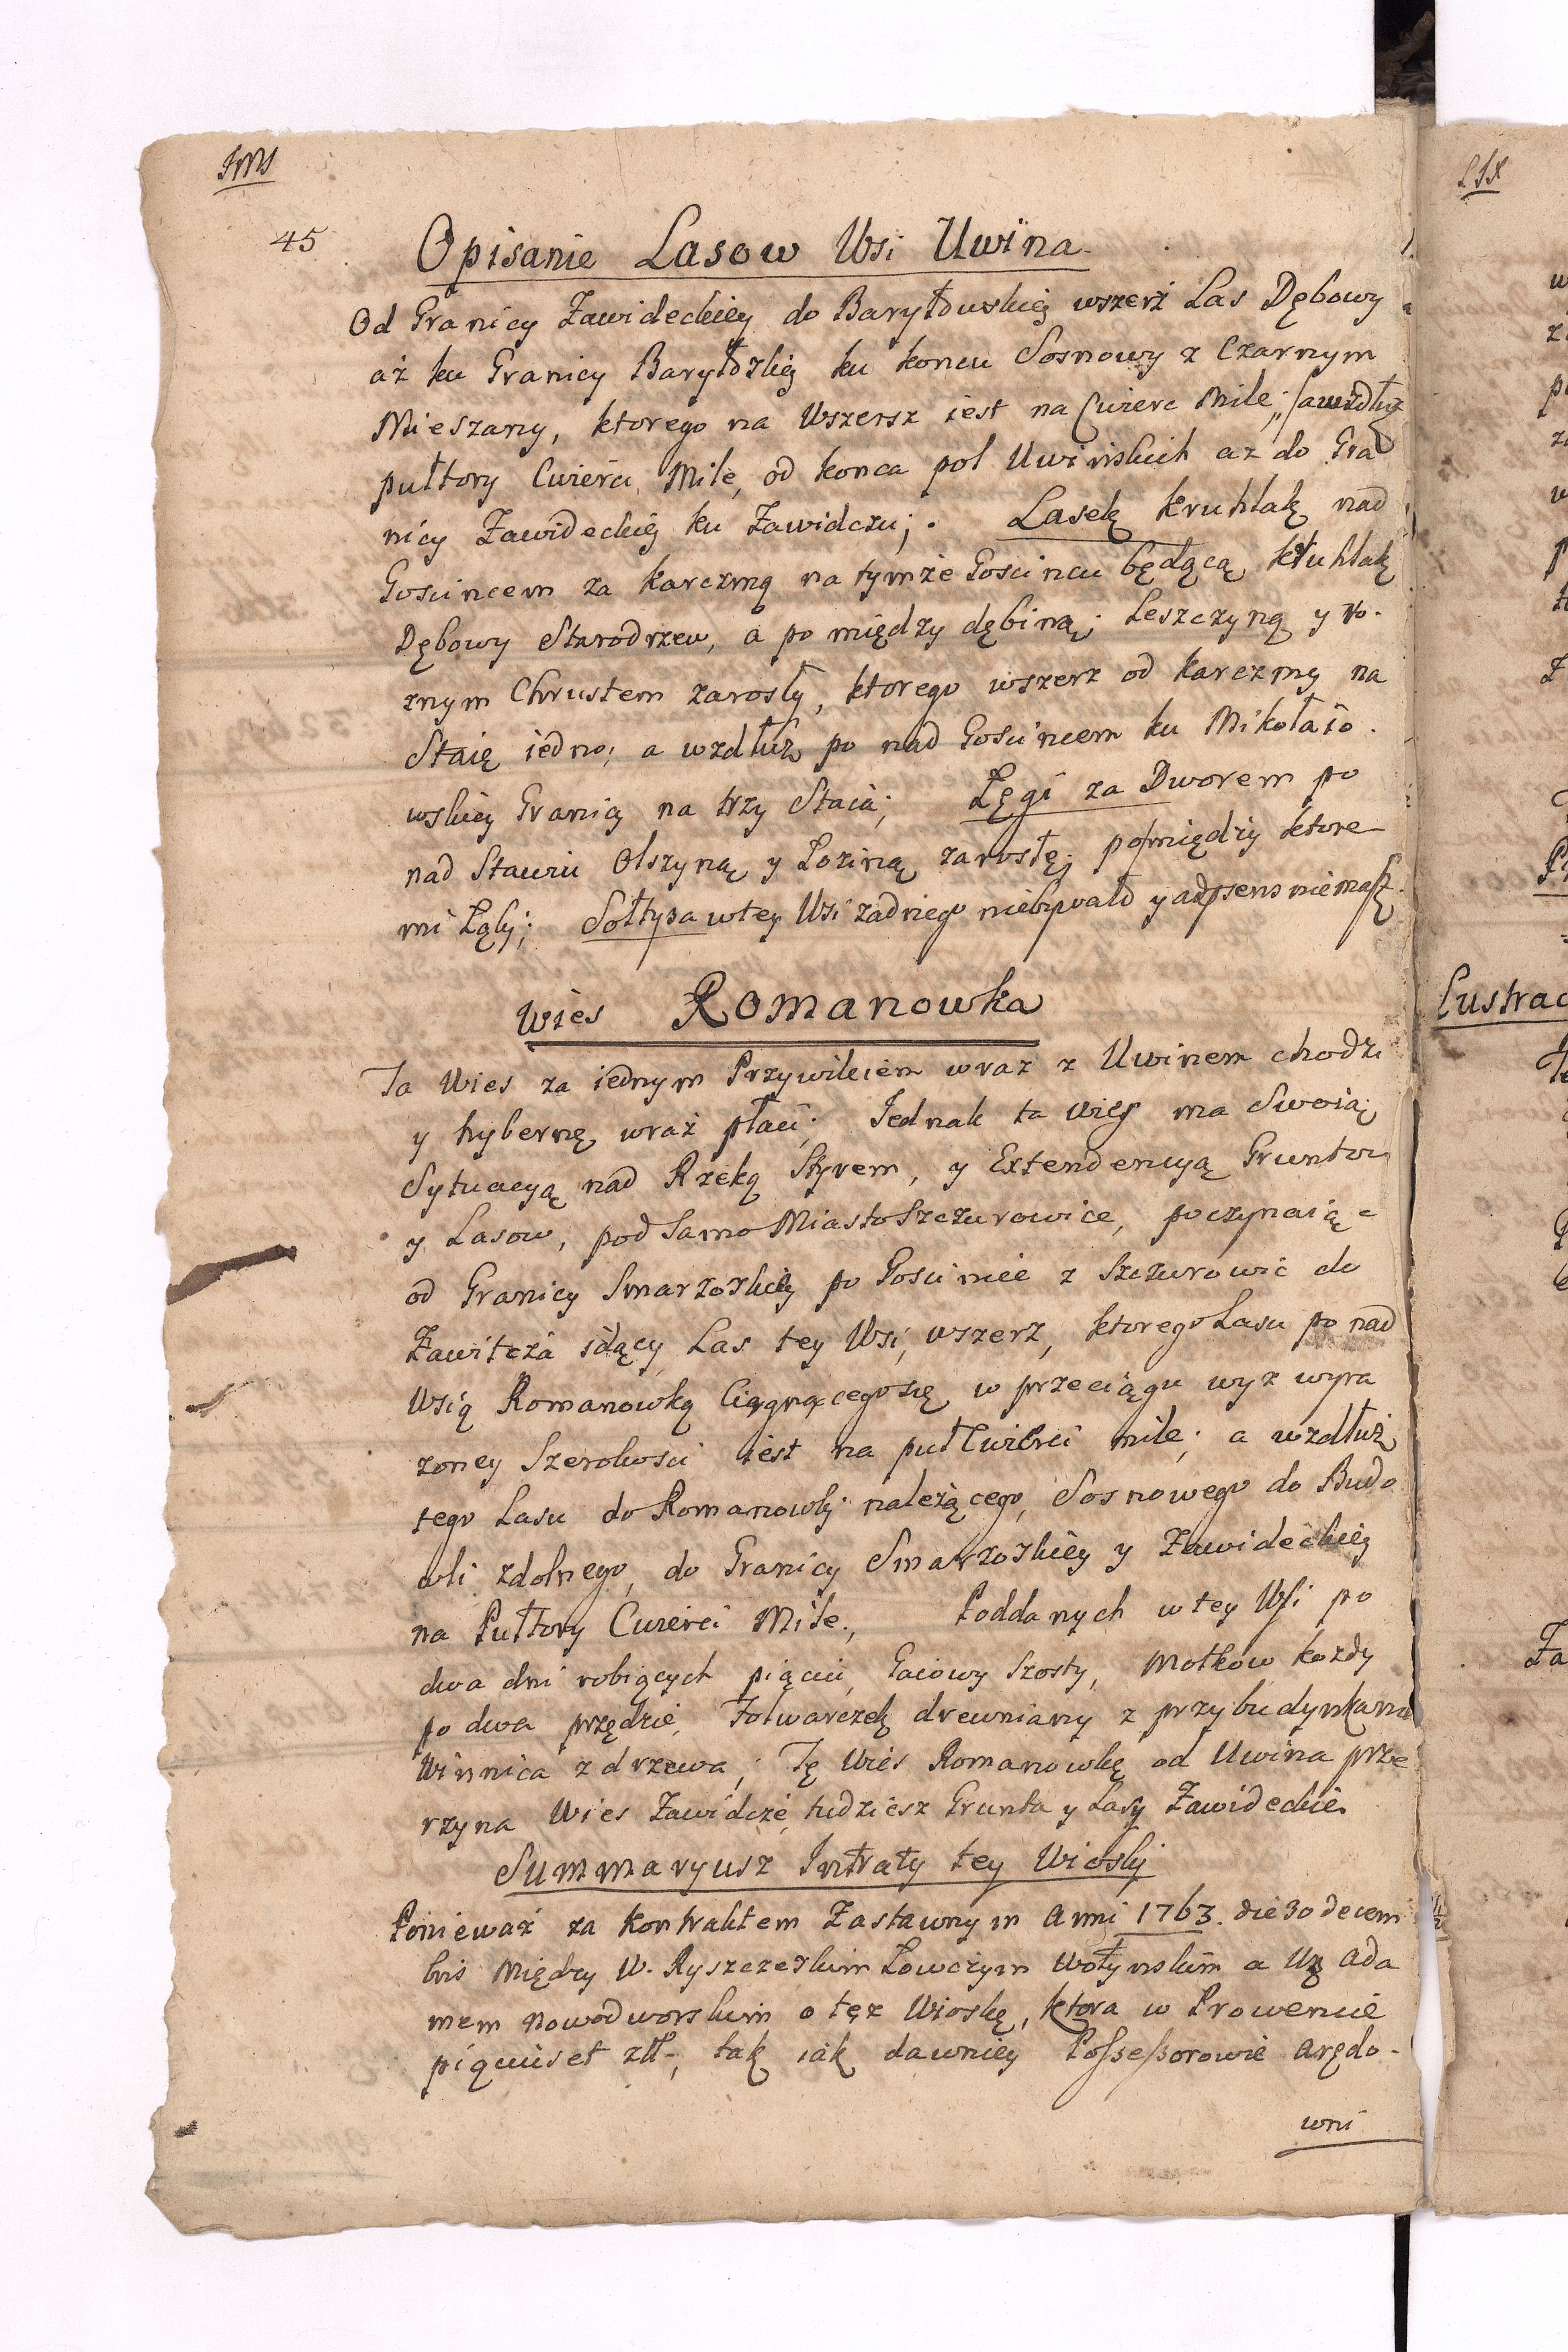 JMJ
45
Opisanie Lasow Wsi Uwina
Od Granicy Zawideckiey do Baryłowskiey wszerż Las Dębowy
aż ku Granicy Baryłoskiey ku koncu Sosnowy z Czarnym
Mieszany, ktorego na Wszersz iest na Cwierc Mile, a wzdłuż
pułtory Cwierci Mile, od konca pol Uwińskich az do Gra
nicy Zawideckiey ku Zawidczu; Lasek kruhlak nad
Goscincem za karczmą na tymże Goscincu będącą kruhlak
Dębowy Starodrzew, a po między dębiną; Leszczyną y ro-
znym Chrustem zarosły, ktorego wszerz od karczmy na
Staię iedno; a wzdłuż po nad Goscincem ku Mikołaio-
wskiey Granicy na trzy Staia; Łęgi za Dworem po
nad Stawu Olszyną y Łoziną zarosłe; pomiędzy ktore
mi Łąki; Sołtysa w tey Wsi zadnego niebywało y adpsens niemasz
Wies Romanowka
Ta Wies za iednym Przywileiem wraz z Uwinem chodzi
y hybernę wraż płaci; Jednak ta Wies ma Swoią
Sytuacyą nad Rzeką Styrem, y Extendencyą Gruntow
y Lasow, pod Samo Miasto Szczurowice, poczynaiąc
od Granicy Smarzoskiey po Goscinie z Szczurowic do
Zawitcza idący Las tey Wsi, wszerz, ktorego Lasu po nad
Wsią Romanowką Ciągnącego się w przeciągu wyz wyra
zoney Szerokosci iest na puł Cwierci mile; a wzdłuż
tego Lasu do Romanowki należącego, Sosnowego do Budo
wli zdolnego, do Granicy Smarzoskiey y Zawideckiey
na Pułtory Cwierci Mile., Poddanych w tey Wsi po
dwa dni robiących pięciu, Gaiowy Szosty, Motkow kazdy
po dwa przędzie, Folwarczek drewniany z przybudynkami
Winnica z drzewa; Tę Wies Romanowkę od Uwina prze
rzyna Wies Zawidcze, tudziesz Grunta y Lasy Zawideckie
Summaryusz Intraty tey Wioski
Poniewaź za Kontraktem Zastawnym Anni 1763. die 30 decem
bris Między W. Ryszczeskim Łowczym Wołynskim a Ada
mem Nowodworskim o tęz Wioskę, ktora w Prowencie
pięciuset złł, tak iak dawniey Possessorowie Arędo-
wni
LJX
Lustrac